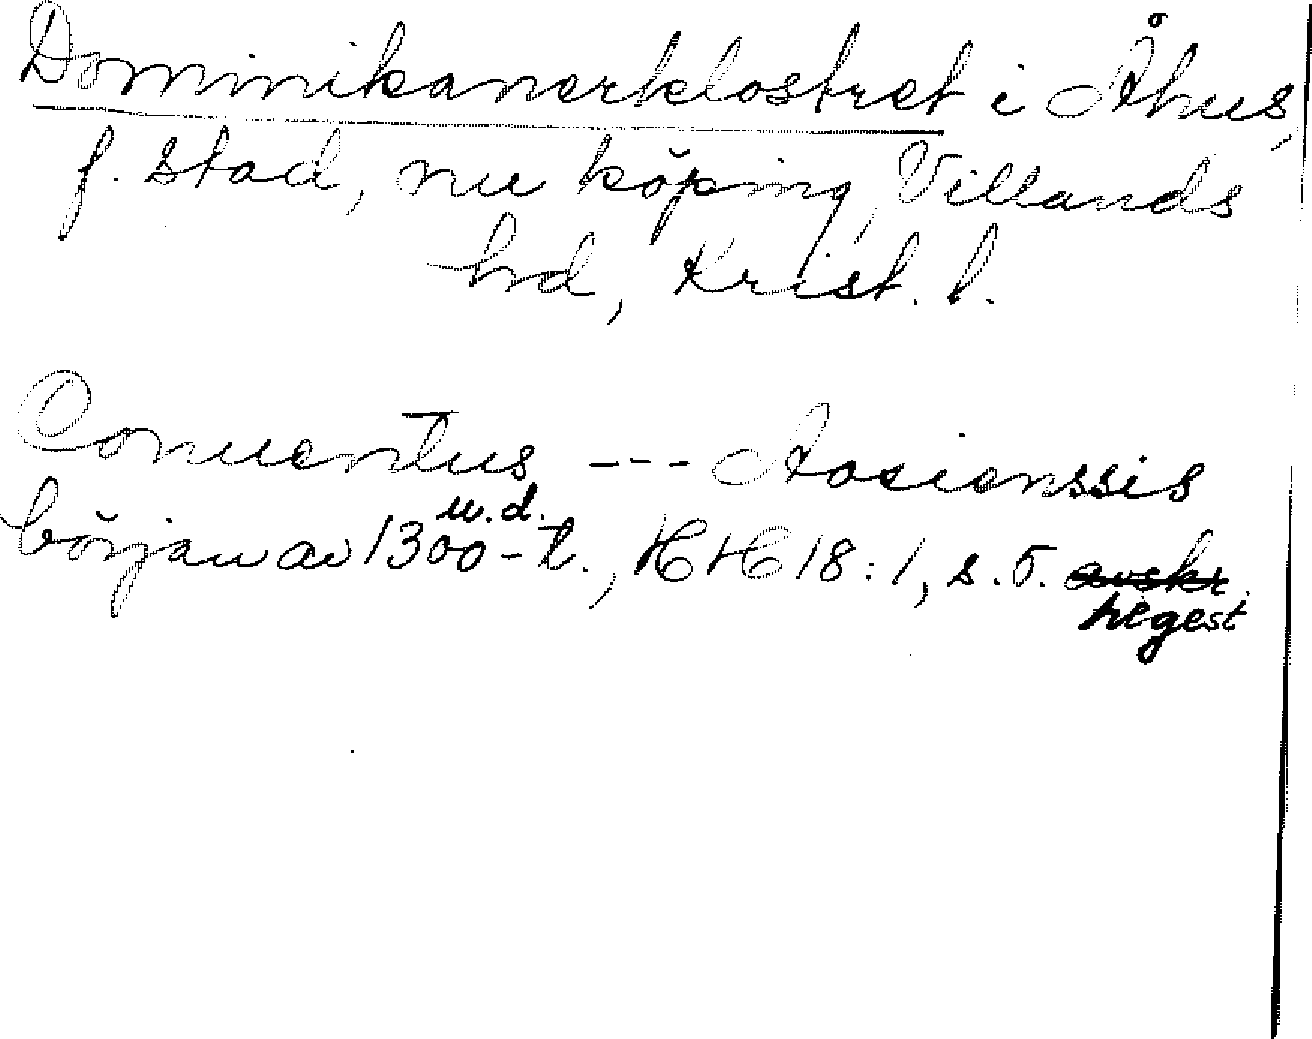 Dominikanerklostret i Åhus,
f. stad, nu köping, Villands
hd, Krist. l.
Conuentus --- Aosienssis
u.d.
början av 1300-t., HH 18:1, s. 5. avskr.
regest